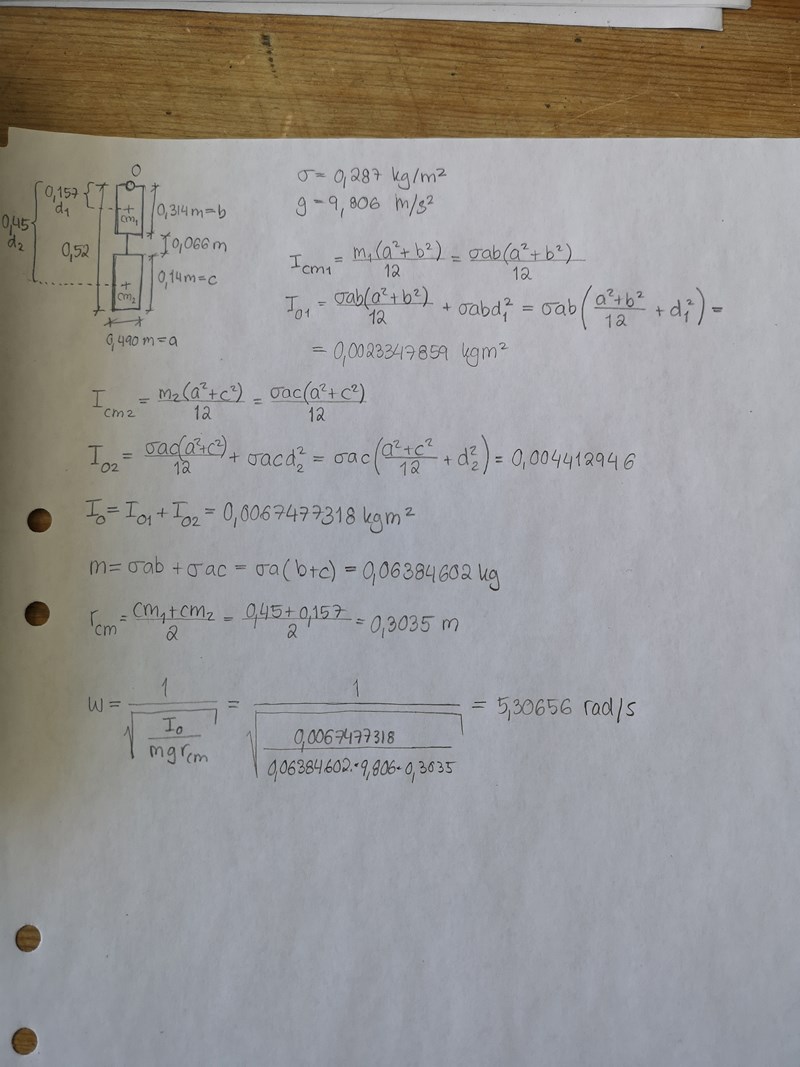 O
0,157
d₁
cm₁
0,314m=b
0,45
d₂
0,52
0,066 m
0,14m=c
cm₂
0,490 m=a
σ=0,287 kg/m²
g=9,806 m/s²
I_cm1 = m₁(a²+b²)/12 = σab(a²+b²)/12
I_O1 = σab(a²+b²)/12 + σabd₁² = σab((a²+b²)/12 + d₁²) =
= 0,0023347859 kgm²
I_cm2 = m₂(a²+c²)/12 = σac(a²+c²)/12
I_O2 = σac(a²+c²)/12 + σacd₂² = σac((a²+c²)/12 + d₂²) = 0,004412946
I_O = I_O1 + I_O2 = 0,0067477318 kgm²
m= σab + σac = σa(b+c) = 0,06384602 kg
r_cm = (cm₁+cm₂)/2 = (0,45+0,157)/2 = 0,3035 m
ω = 1/√(I_O/(mgr_cm)) = 1/√(0,0067477318/(0,06384602·9,806·0,3035)) = 5,30656 rad/s